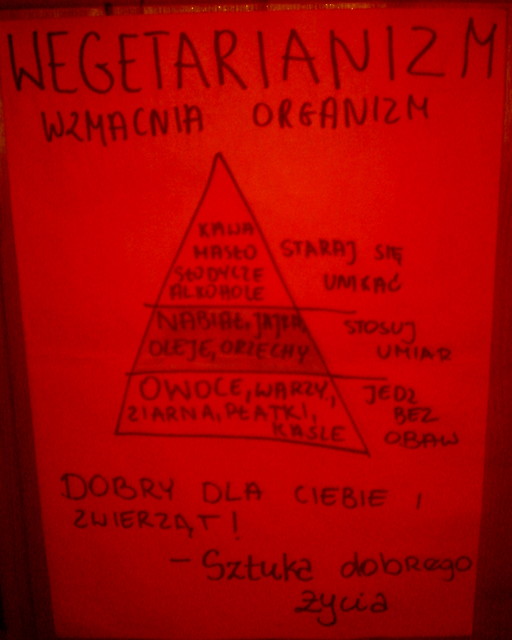 WEGETARIANIZM
WZMACNIA ORGANIZM
KAWA
MASŁO
SŁODYCZE
ALKOHOLE
STARAJ SIĘ
UNIKAĆ
NABIAŁ, JAJKA,
OLEJE, ORZECHY
STOSUJ
UMIAR
OWOCE, WARZY,
ZIARNA, PŁATKI,
KASZE
JEDZ
BEZ
OBAW
DOBRY DLA CIEBIE I
ZWIERZĄT!
- Sztuka dobrego
życia